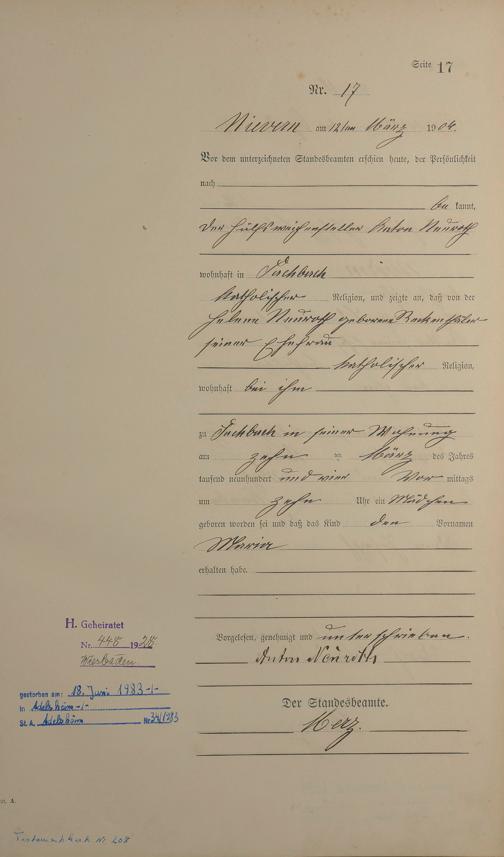 Seite 17
Nr. 17
Nievern am 12ten März 1904.
Vor dem unterzeichneten Standesbeamten erschien heute, der Persönlichkeit
nach
be kannt,
der Hülfsweichensteller Anton Neuroth
wohnhaft in Fachbach
katholischer Religion, und zeigte an, daß von der
Helene Neuroth geborene
seiner Ehefrau
katholischer Religion,
wohnhaft bei ihm
zu Fachbach in seiner Wohnung
am zehn ten März des Jahres
tausend neunhundert und vier Vor mittags
um zehn Uhr ein Mädchen
geboren worden sei und daß das Kind den Vornamen
Maria
erhalten habe.
Vorgelesen, genehmigt und unterschrieben.
Anton Neuroth
Der Standesbeamte.
Merz.
H. Geheiratet
Nr. 19
Wiesbaden
gestorben am: 18. Juni 1983 -/-
in Adelsheim -/-
St. A. Adelsheim Nr 34/1983
A.
Nr. 208